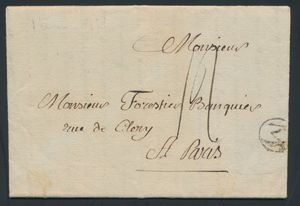 Monsieur
Monsieur Forestier Banquier
rue de Clery
A Paris